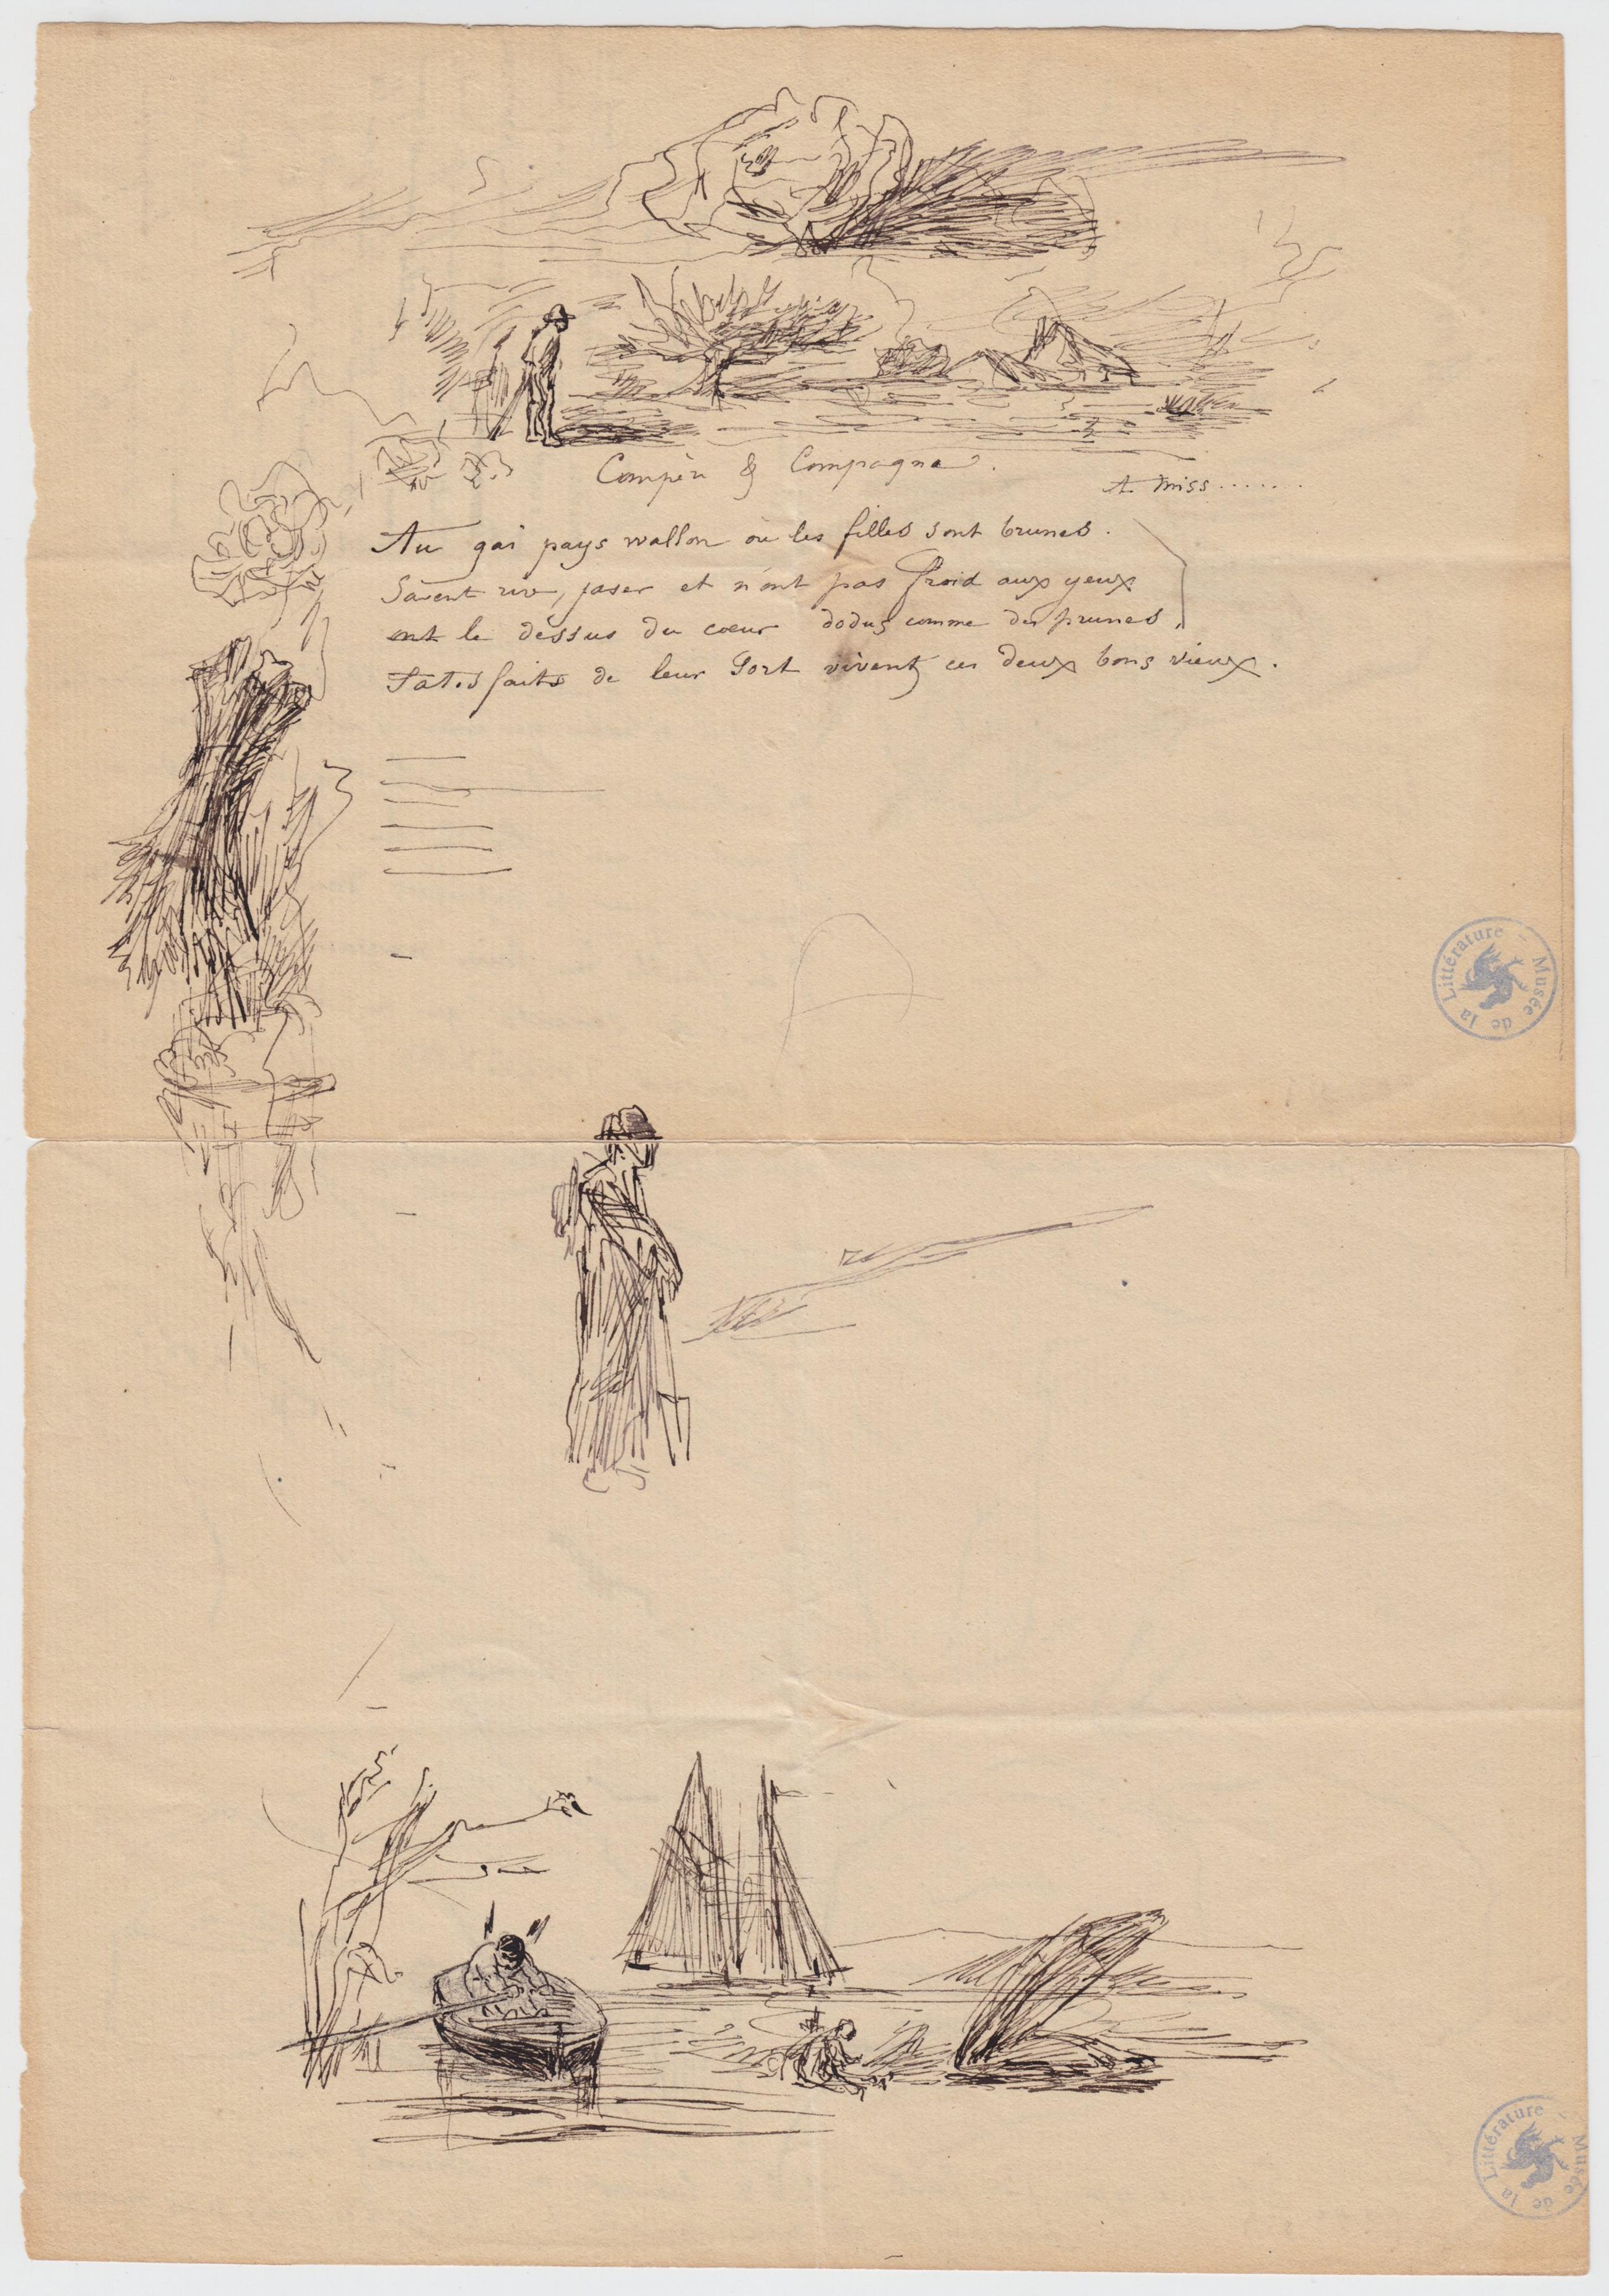 Compère & Compagne.
A miss.......
Au gai pays wallon où les filles sont brunes.
Savent rire, jaser et n'ont pas froid aux yeux
ont le dessus du cœur dodus comme des prunes,
Satisfaits de leur Sort vivent ces deux bons vieux.
Musée de la Littérature
Musée de la Littérature